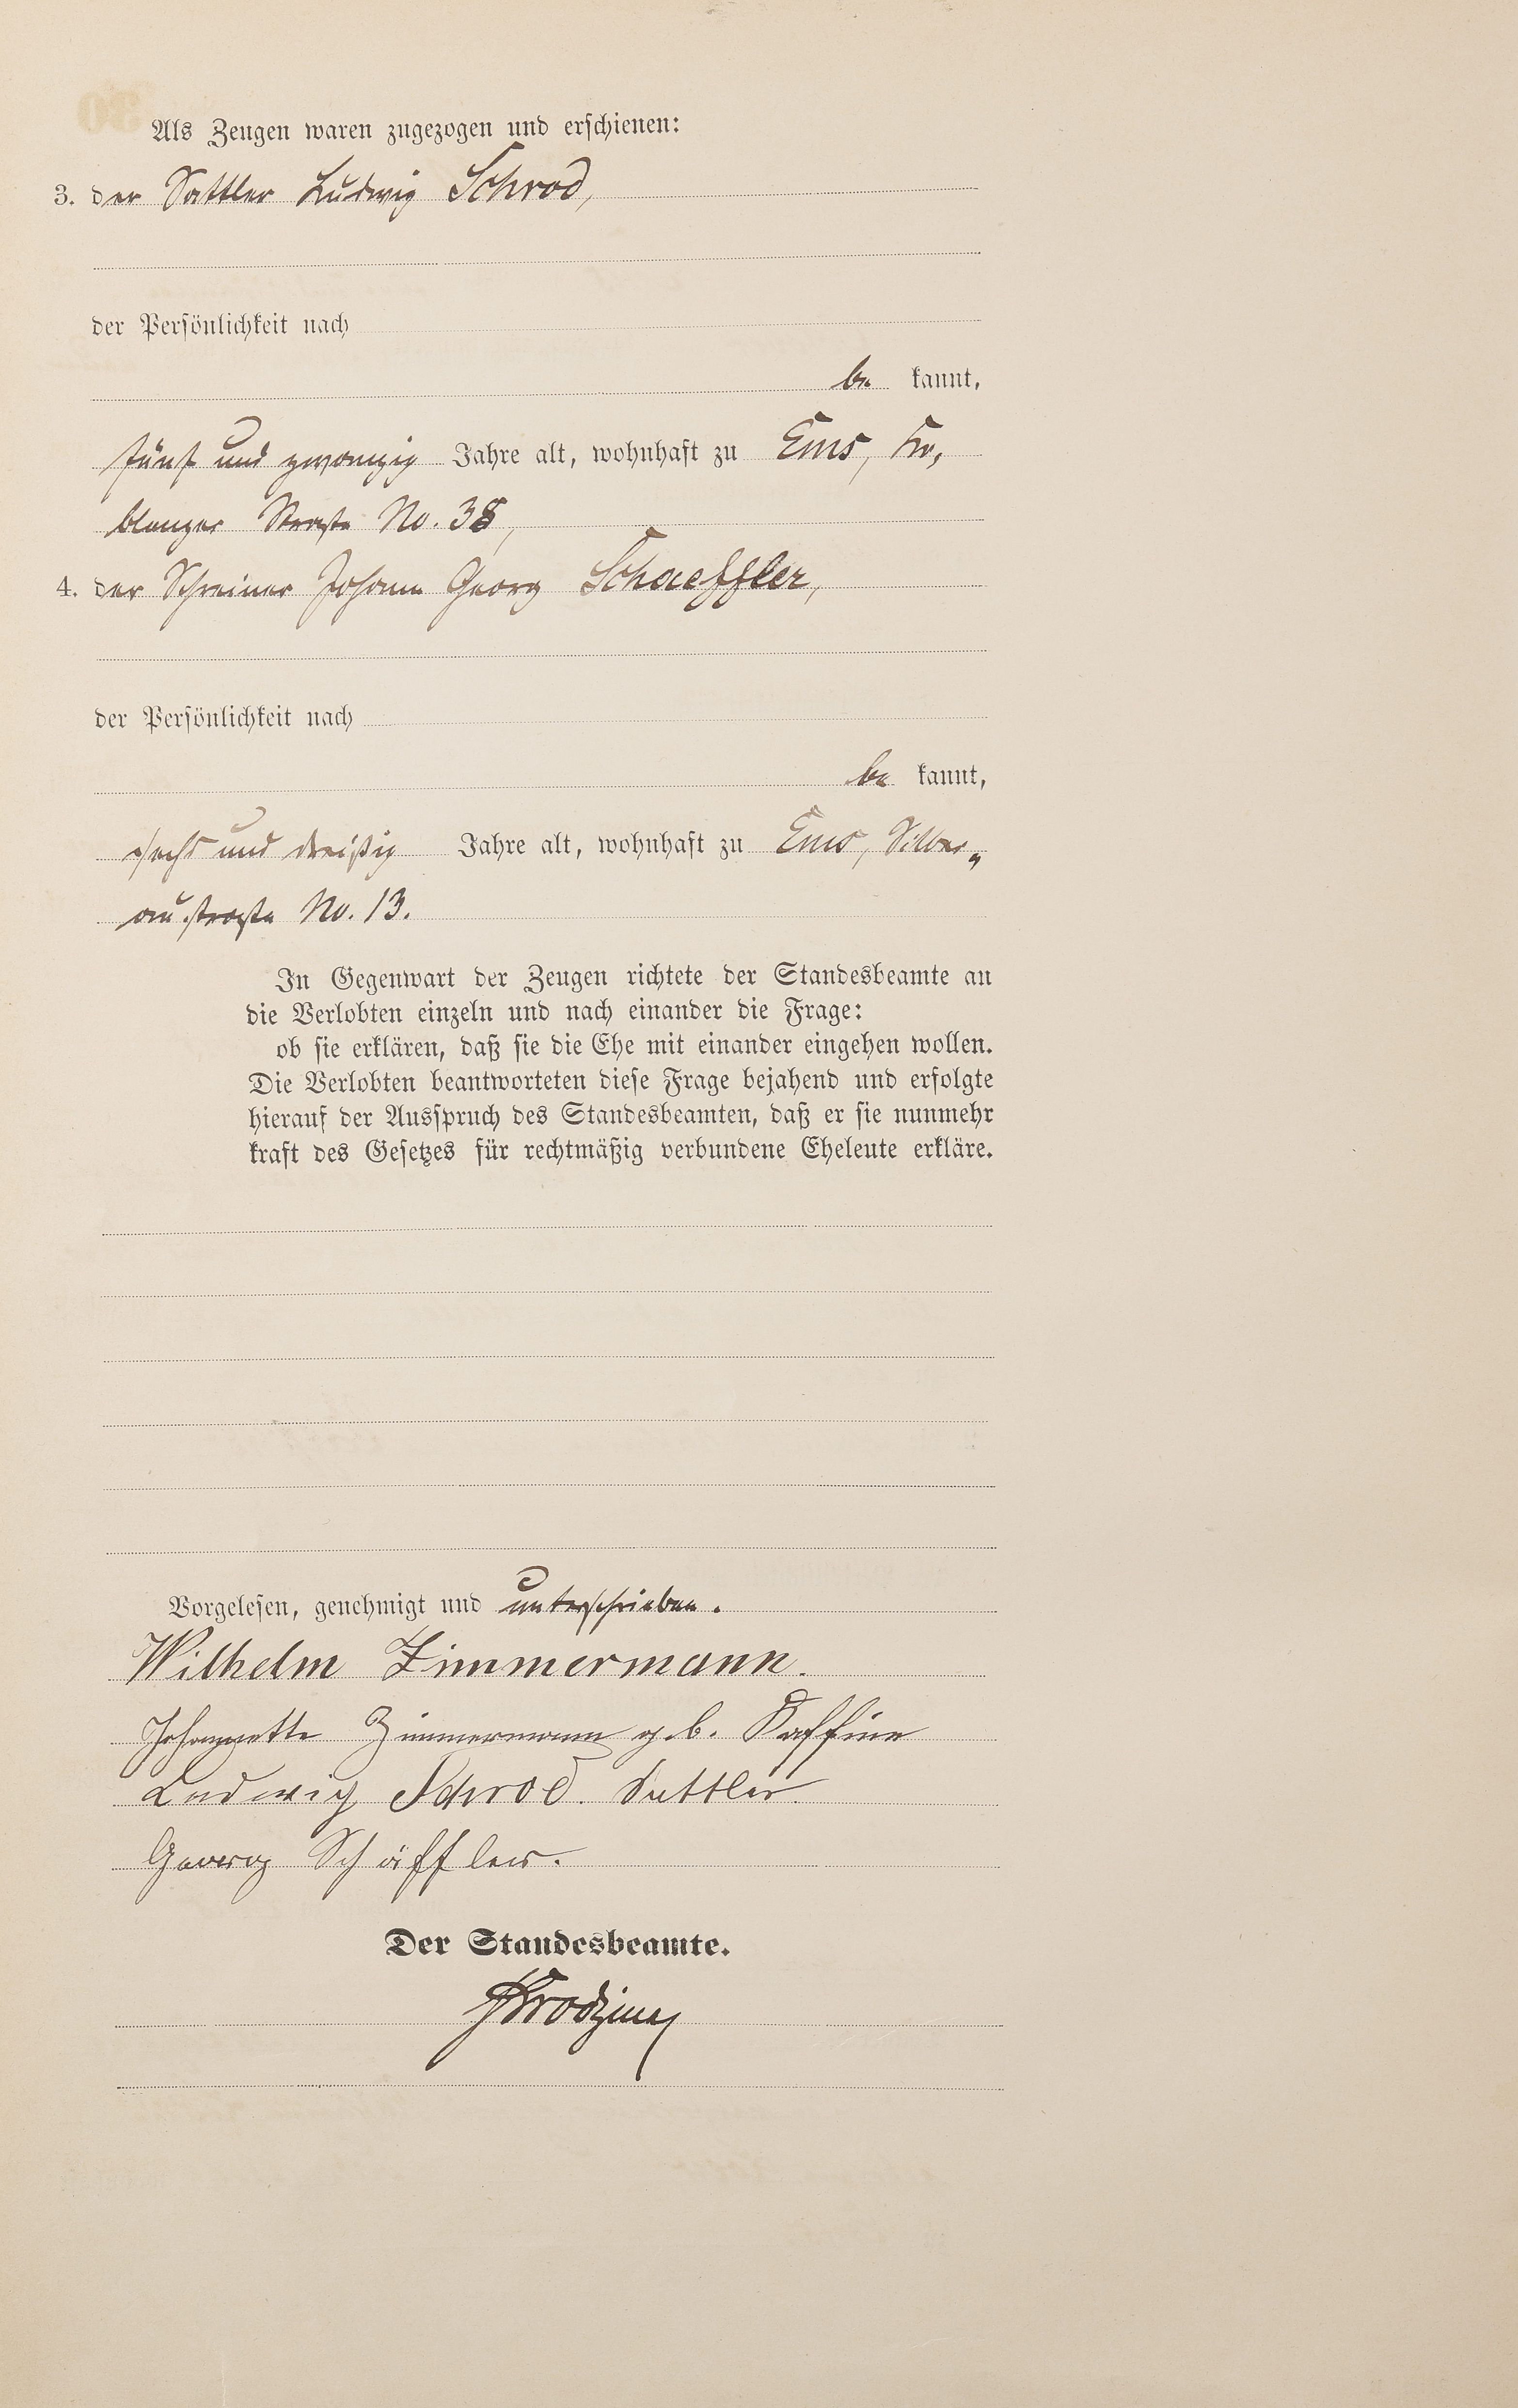 Als Zeugen waren zugezogen und erschienen:
3. der Sattler Ludwig Schrod,
der Persönlichkeit nach
be kannt,
fünf und zwanzig Jahre alt, wohnhaft zu Ems, Ko,
blenzer Straße No. 38,
4. der Schreiner Johann Georg Schaeffler,
der Persönlichkeit nach
be kannt,
sechs und dreißig Jahre alt, wohnhaft zu Ems, Silber„
austraße No. 13.
In Gegenwart der Zeugen richtete der Standesbeamte an
die Verlobten einzeln und nach einander die Frage:
ob sie erklären, daß sie die Ehe mit einander eingehen wollen.
Die Verlobten beantworteten diese Frage bejahend und erfolgte
hierauf der Ausspruch des Standesbeamten, daß er sie nunmehr
kraft des Gesetzes für rechtmäßig verbundene Eheleute erkläre.
Vorgelesen, genehmigt und unterschrieben.
Wilhelm Zimmermann.
Johannette Zimmermann geb. Kaffine
Ludwig Schrod. Sattler.
Georg Schäffler.
Der Standesbeamte.